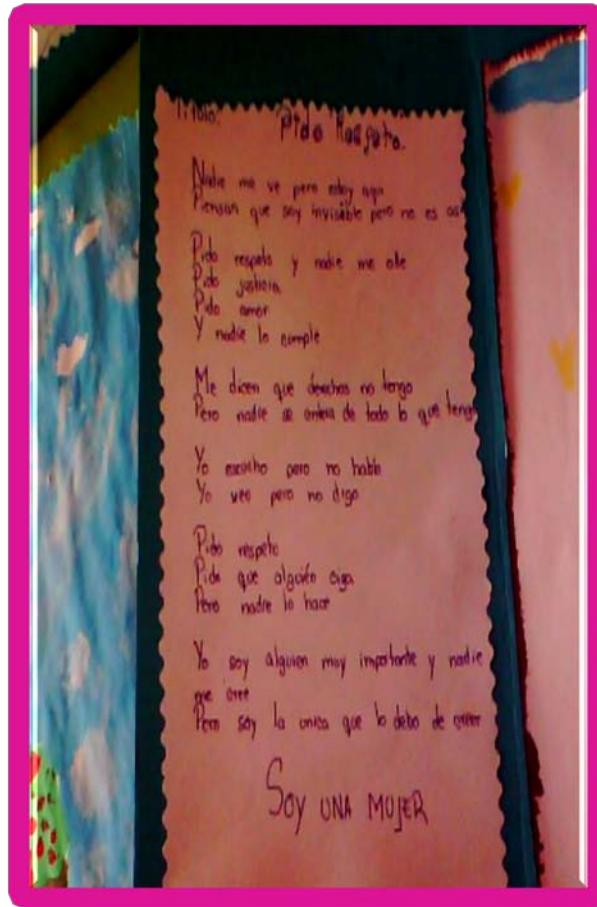 Titulo:
Pido Respeto.
Nadie me ve pero estoy aqui
Piensan que soy invisible pero no es asi
Pido respeto y nadie me olle
Pido justicia
Pido amor
Y nadie lo cumple
Me dicen que derechos no tengo
Pero nadie se entera de todo lo que tengo
Yo escucho pero no hablo
Yo veo pero no digo
Pido respeto
Pido que alguién oiga
Pero nadie lo hace
Yo soy alguien muy importante y nadie
me cree
Pero soy la unica que lo debo de creer
SOY UNA MUJER